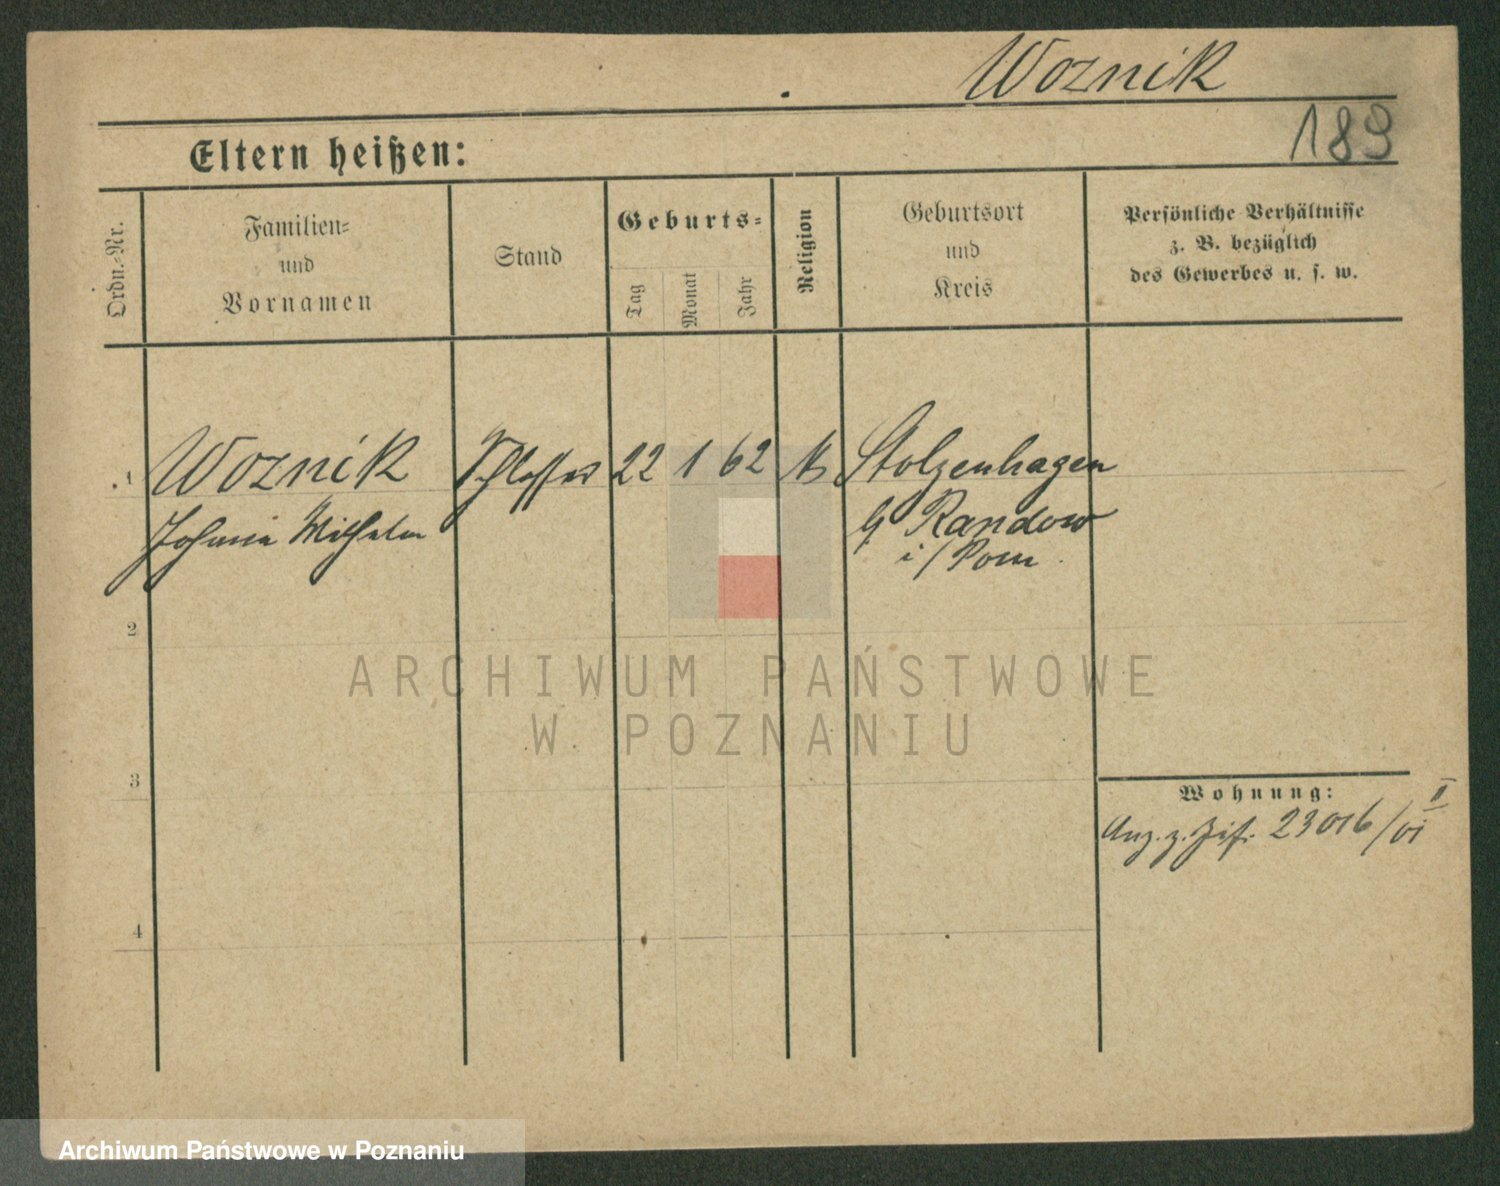 Woznik
189
Eltern heißen:
Ordn.-Nr.
Familien-
und
Vornamen
Stand
Geburts-
Tag
Monat
Jahr
Religion
Geburtsort
und
Kreis
Persönliche Verhältnisse
z. B. bezüglich
des Gewerbes u. s. w.
1 Woznik Schlosser 22 1 62 Stolzenhagen
Johann Wilhelm Randow
i/Pom
2
3
4
Wohnung:
Anz. z. 23016/01
II
ARCHIWUM PAŃSTWOWE
W POZNANIU
Archiwum Państwowe w Poznaniu